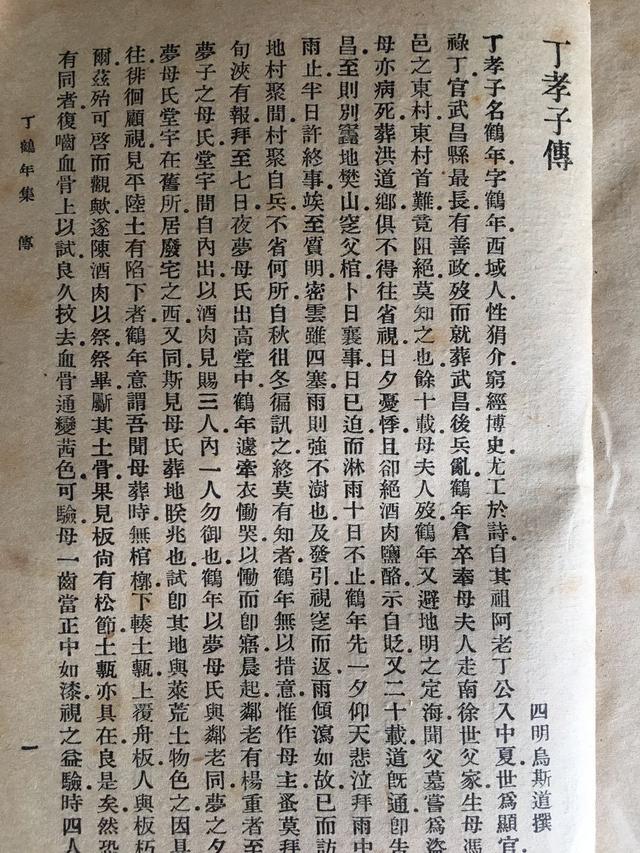 丁孝子傳
四明烏斯道撰
丁孝子名鶴年字鶴年西域人性狷介窮經博史尤工於詩自其祖阿老丁公入中夏世爲顯官
祿丁官武昌縣最長有善政歿而就葬武昌後兵亂鶴年倉卒奉母夫人走南徐世父家生母馮
邑之東村東村首難竟阻絕莫知之也餘十載母夫人歿鶴年又避地明之定海聞父墓嘗爲盜
母亦病死葬洪道鄉俱不得往省視日夕憂悸且卻絕酒肉鹽酪示自貶又二十載道旣通卽告
昌至則別竁地樊山窆父棺卜日襄事日已迫而淋雨十日不止鶴年先一夕仰天悲泣拜雨中
雨止半日許終事竢至質明密雲雖四塞雨則強不澍也及發引視窆而返雨傾瀉如故已而訪
地村聚間村聚自兵不省何所自秋徂冬徧訊之終莫有知者鶴年無以措意惟作母主蚤莫拜
旬浹有報拜至七日夜夢母氏出高堂中鶴年遽牽衣慟哭以慟而卽寤晨起鄰老有楊重者至
夢子之母氏堂宇間自內出以酒肉見賜三人內一人勿御也鶴年以夢母氏與鄰老同夢之夕
夢母氏堂宇在舊所居廢宅之西又同斯見母氏葬地眹兆也試卽其地與萊荒土物色之因具
往徘徊顧視見平陸土有陷下者鶴年意謂吾聞母葬時無棺槨下輳土甎上覆舟板人與板朽
爾茲殆可啓而觀歟遂陳酒肉以祭祭畢斸其土骨果見板尙有松節土甎亦具在良是矣然恐
有同者復嚙血骨上以試良久抆去血骨通變茜色可驗母一齒當正中如漆視之益驗時四人
丁鶴年集 傳
一